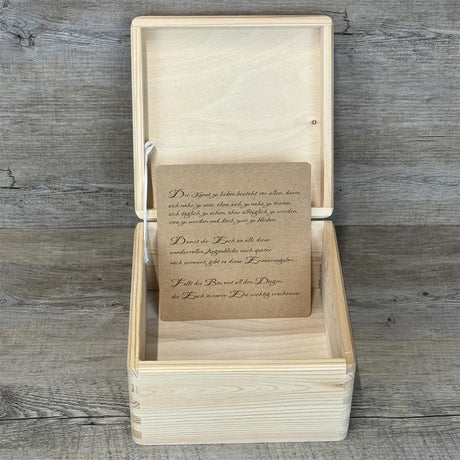 Die Kunst zu lieben besteht vor allem darin,
sich nahe zu sein, ohne sich zu nahe zu treten,
sich täglich zu sehen, ohne alltäglich zu werden,
eins zu werden und doch zwei zu bleiben.
Damit ihr Euch an all diese
wundervollen Augenblicke auch später
noch erinnert, gibt es diese Erinnerungsbox.
Fülle die Box mit all den Dingen,
die Euch in eurer Ehe wichtig erscheinen.